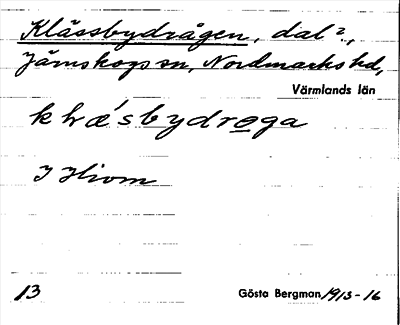 Klässbydrågen, dal?,
Järnskogs sn, Nordmarks hd,
Värmlands län
klæ´sbydrøga
J Hiom
13 Gösta Bergman 1915-16